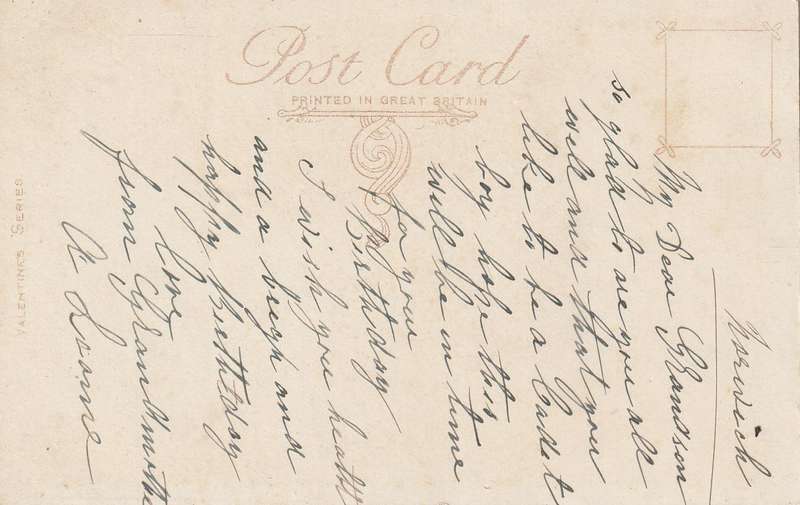 Post Card
PRINTED IN GREAT BRITAIN
VALENTINE'S SERIES
Norwich
My Dear Grandson
so glad to see you all
well and that you
like to be a Cadet
boy hope this
will be in time
for your
Birthday
I wish you health
and a bright and
happy Birthday
love
from Grandmothe
A Loome